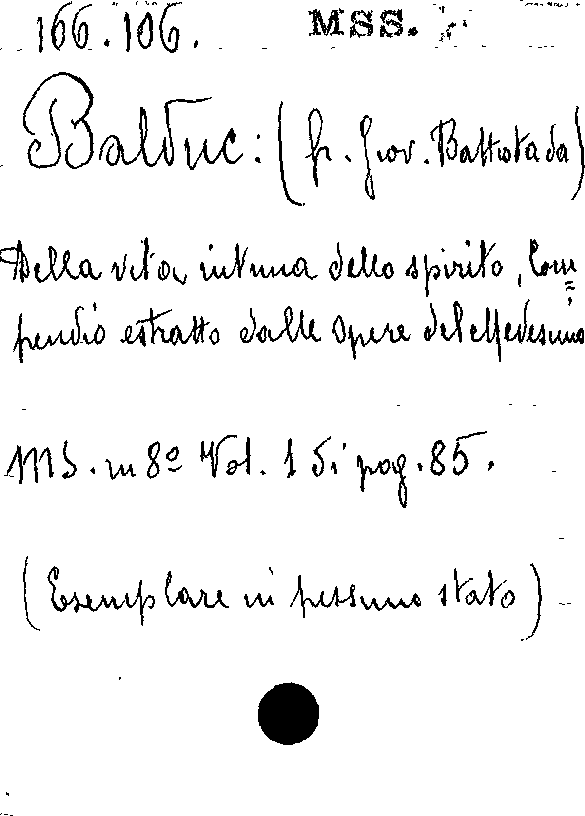 166.106. MSS.
Balduc: (fr. Giov. Battista da)
Della vita intima dello spirito, Com=
pendio estratto dalle Opere del Medesimo
MS. in 8º Vol. 1 di pag. 85.
(Esemplare in pessimo stato)